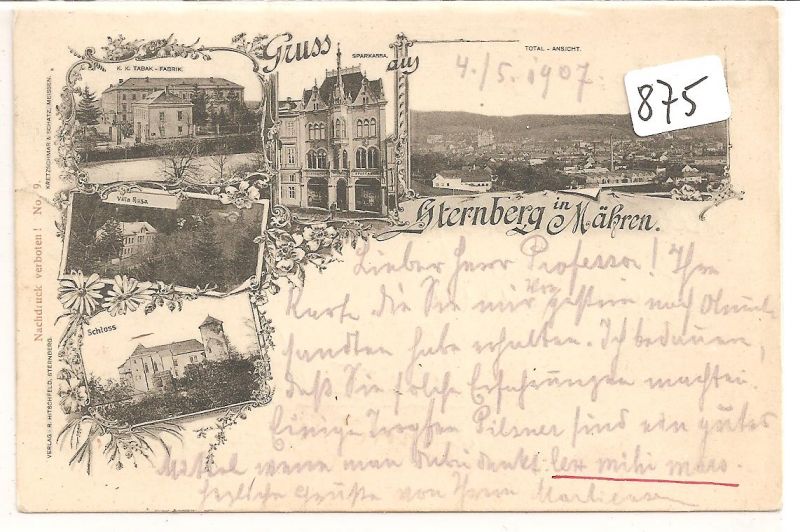 Gruss aus
K. K. TABAK - FABRIK.
SPARKASSA.
TOTAL - ANSICHT.
4./5. 1907.
875
Sternberg in Mähren.
Villa Rosa
Schloss
Nachdruck verboten! No. 9.
KRETZSCHMAR & SCHATZ, MEISSEN.
VERLAG: R. HITSCHFELD, STERNBERG.
Lieber Herr Professor! Ihre
Karte die Sie mir vorgestern nach
sandten habe erhalten. Ich bedauere,
daß Sie solche Erfahrungen machten.
Einige Tropfen Pilsner sind ein gutes
Mittel wenn man dabei denkt: lex mihi mars.
Herzliche Grüße von Ihrem